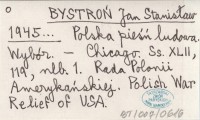 BYSTROŃ Jan Stanisław
1945... Polska pieśń ludowa.
Wybór. - Chicago. Ss. XLII,
119, nlb. 1. Rada Polonii
Amerykańskiej. Polish War
Relief of USA.